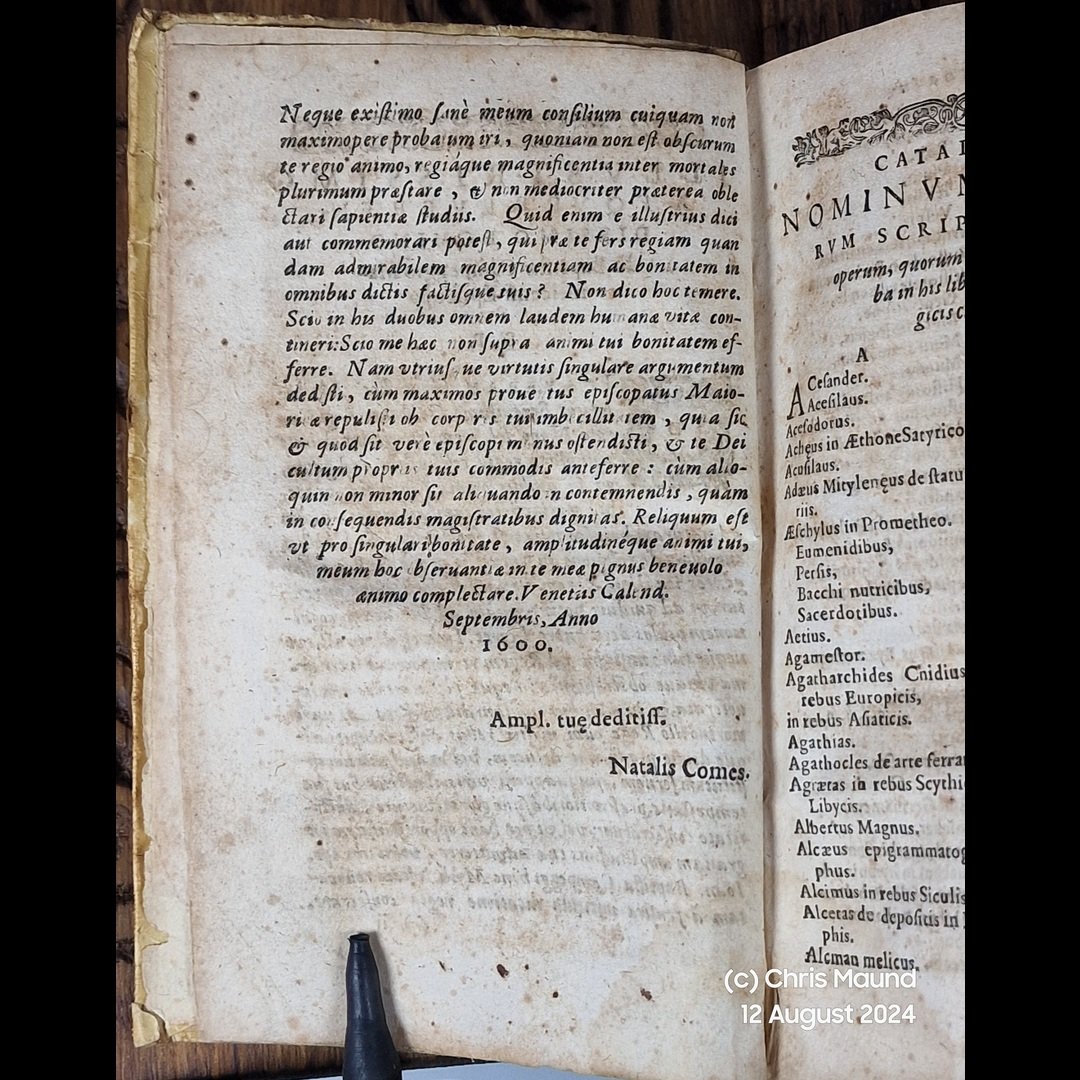 Neque exiſtimo ſanè meum conſilium cuiquam non
maximopere probatum iri, quoniam non eſt obſcurum
te regio animo, regiáque magnificentia inter mortales
plurimum præſtare, & non mediocriter præterea oble
ctari ſapientiæ ſtudiis. Quid enim e illuſtrius dici
aut commemorari poteſt, qui præ te fers regiam quan
dam admirabilem magnificentiam ac bonitatem in
omnibus dictis factiſque tuis? Non dico hoc temere.
Scio in his duobus omnem laudem humanæ vitæ con-
tineri: Scio me hæc non ſupra animi tui bonitatem ef-
ferre. Nam vtriuſque virtutis ſingulare argumentum
dediſti, cùm maximos prouentus epiſcopatus Maio-
repuliſti ob corporis tui imbecillitatem, quia ſic
& quod ſit verè epiſcopi munus oſtendiſti, & te Dei
cultum propriis tuis commodis anteferre: cùm alio-
quin non minor ſit aliquando in contemnendis, quàm
in conſequendis magiſtratibus dignitas. Reliquum eſt
vt pro ſingulari bonitate, amplitudinéque animi tui,
meum hoc obſeruantiæ in te meæ pignus beneuolo
animo complectare. Venetiis Calend.
Septembris, Anno
1600.
Ampl. tuę deditiſſ.
Natalis Comes.
CATAL
NOMINVM
RVM SCRIP
operum, quorum
ba in his lib
gicis c
A
Aceſander.
Aceſilaus.
Aceſodorus.
Achęus in Æthone Satyrico
Acuſilaus.
Adæus Mitylenęus de ſtatu
riis.
Æſchylus in Prometheo.
Eumenidibus,
Perſis,
Bacchi nutricibus,
Sacerdotibus.
Aetius.
Agameſtor.
Agatharchides Cnidius
rebus Europicis,
in rebus Aſiaticis.
Agathias.
Agathocles de arte ferrar
Agrætas in rebus Scythi
Libycis.
Albertus Magnus.
Alcæus epigrammatog
phus.
Alcimus in rebus Siculis
Alcetas de depoſitis in
phis.
Alcman melicus.
(c) Chris Maund
12 August 2024